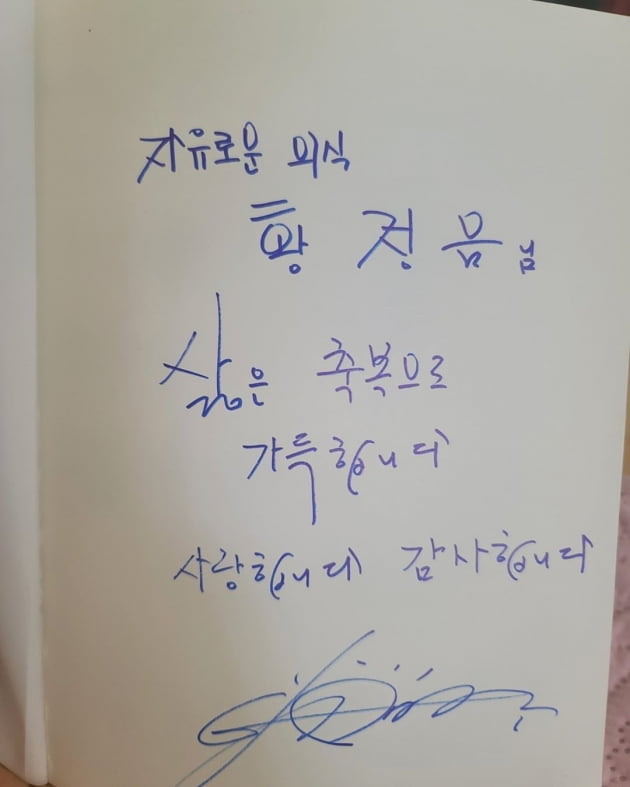 자유로운 의식
황 정음님
삶은 축복으로
가득합니다
사랑합니다 감사합니다